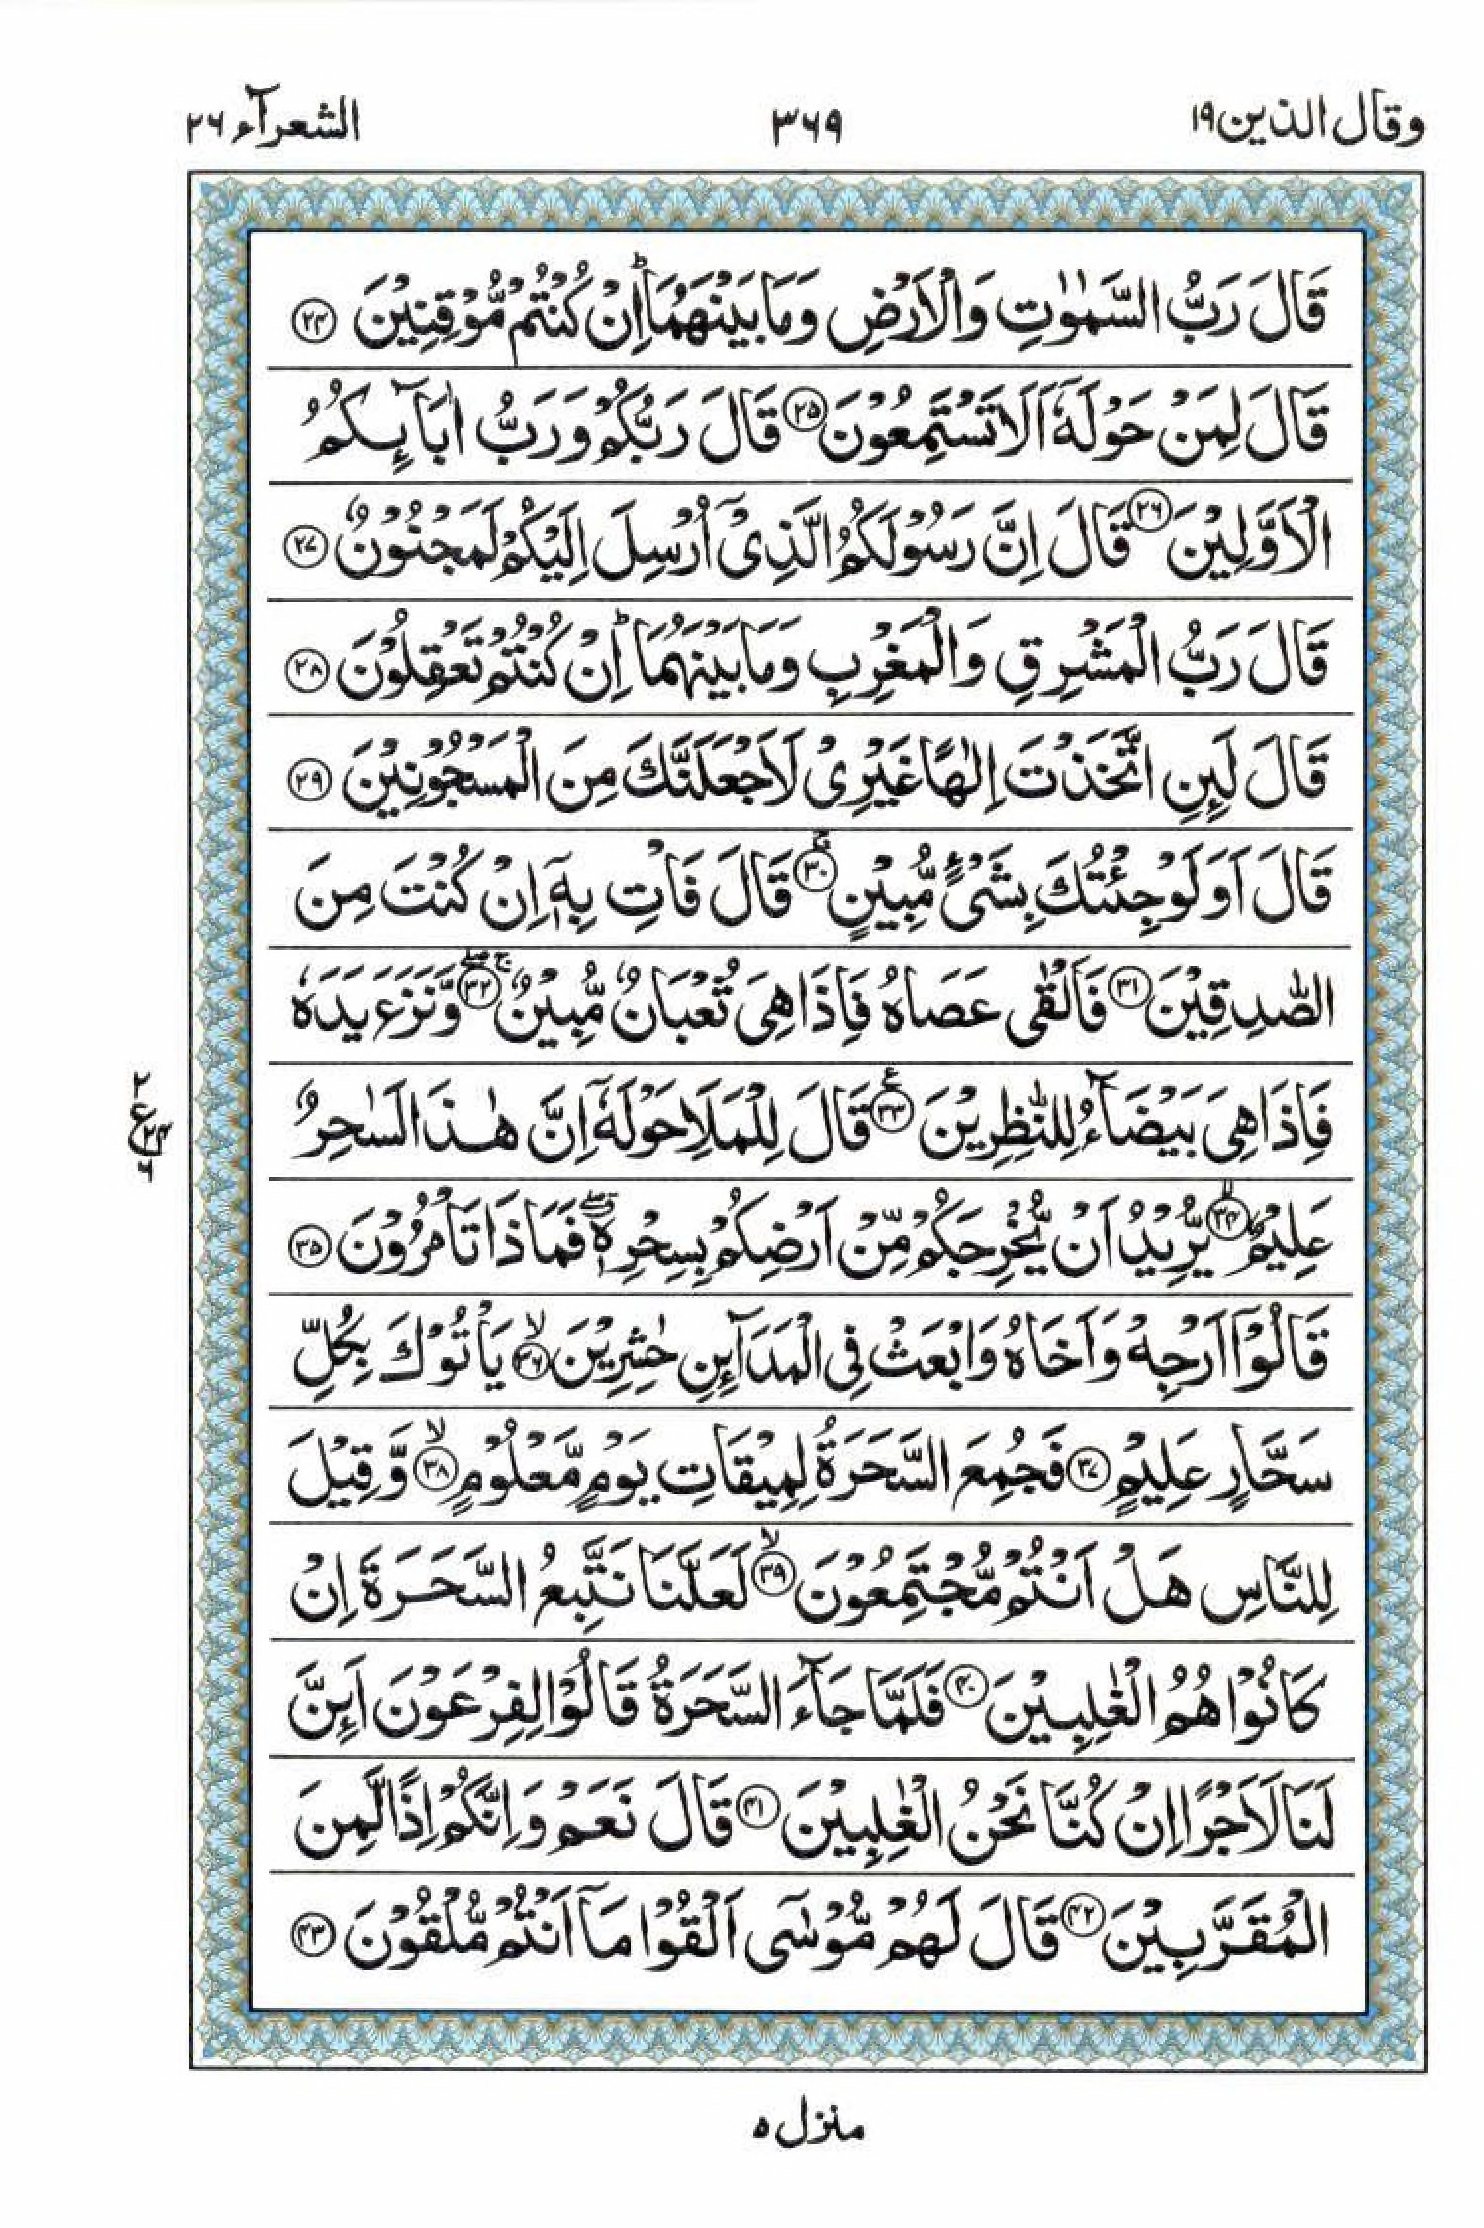 وقال الذین ۱۹
۳۶۹
الشعرآء ۲۶
قَالَ رَبُّ السَّمٰوٰتِ وَالْاَرْضِ وَمَا بَیْنَهُمَاؕ اِنْ كُنْتُمْ مُّوْقِنِیْنَ ۝۲۴
قَالَ لِمَنْ حَوْلَهٗۤ اَلَا تَسْتَمِعُوْنَ ۝۲۵ قَالَ رَبُّكُمْ وَرَبُّ اٰبَآىِٕكُمُ
الْاَوَّلِیْنَ ۝۲۶ قَالَ اِنَّ رَسُوْلَكُمُ الَّذِیْۤ اُرْسِلَ اِلَیْكُمْ لَمَجْنُوْنٌ ۝۲۷
قَالَ رَبُّ الْمَشْرِقِ وَالْمَغْرِبِ وَمَا بَیْنَهُمَاؕ اِنْ كُنْتُمْ تَعْقِلُوْنَ ۝۲۸
قَالَ لَىِٕنِ اتَّخَذْتَ اِلٰهًا غَیْرِیْ لَاَجْعَلَنَّكَ مِنَ الْمَسْجُوْنِیْنَ ۝۲۹
قَالَ اَوَلَوْ جِئْتُكَ بِشَیْءٍ مُّبِیْنٍ ۝۳۰ۚ قَالَ فَاْتِ بِهٖۤ اِنْ كُنْتَ مِنَ
الصّٰدِقِیْنَ ۝۳۱ فَاَلْقٰی عَصَاهُ فَاِذَا هِیَ ثُعْبَانٌ مُّبِیْنٌ ۝۳۲ۚۖ وَّنَزَعَ یَدَهٗ
فَاِذَا هِیَ بَیْضَآءُ لِلنّٰظِرِیْنَ ۝۳۳ع قَالَ لِلْمَلَاِ حَوْلَهٗۤ اِنَّ هٰذَا لَسٰحِرٌ
عَلِیْمٌ ۝۳۴ۙ یُّرِیْدُ اَنْ یُّخْرِجَكُمْ مِّنْ اَرْضِكُمْ بِسِحْرِهٖ ۖۗ فَمَاذَا تَاْمُرُوْنَ ۝۳۵
قَالُوْۤا اَرْجِهْ وَاَخَاهُ وَابْعَثْ فِی الْمَدَآىِٕنِ حٰشِرِیْنَ ۝۳۶ۙ یَاْتُوْكَ بِكُلِّ
سَحَّارٍ عَلِیْمٍ ۝۳۷ فَجُمِعَ السَّحَرَةُ لِمِیْقَاتِ یَوْمٍ مَّعْلُوْمٍ ۝۳۸ۙ وَّقِیْلَ
لِلنَّاسِ هَلْ اَنْتُمْ مُّجْتَمِعُوْنَ ۝۳۹ۙ لَعَلَّنَا نَتَّبِعُ السَّحَرَةَ اِنْ
كَانُوْا هُمُ الْغٰلِبِیْنَ ۝۴۰ فَلَمَّا جَآءَ السَّحَرَةُ قَالُوْا لِفِرْعَوْنَ اَىِٕنَّ
لَنَا لَاَجْرًا اِنْ كُنَّا نَحْنُ الْغٰلِبِیْنَ ۝۴۱ قَالَ نَعَمْ وَاِنَّكُمْ اِذًا لَّمِنَ
الْمُقَرَّبِیْنَ ۝۴۲ قَالَ لَهُمْ مُّوْسٰۤی اَلْقُوْا مَاۤ اَنْتُمْ مُّلْقُوْنَ ۝۴۳
۲
ع۲۴
۶
منزل ۵